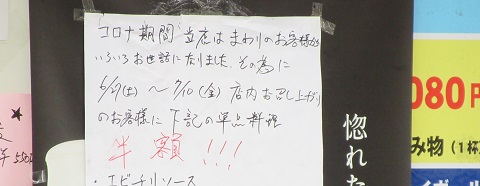 "コロナ期間"当店はまわりのお客様から
いろいろお世話になりました。その為に
6/27(土) 〜 7/10(金) 店内お召し上がり
のお客様に下記の単点料理
半額!!!
・エビチリソース
惚れた
080円
み物(1杯)